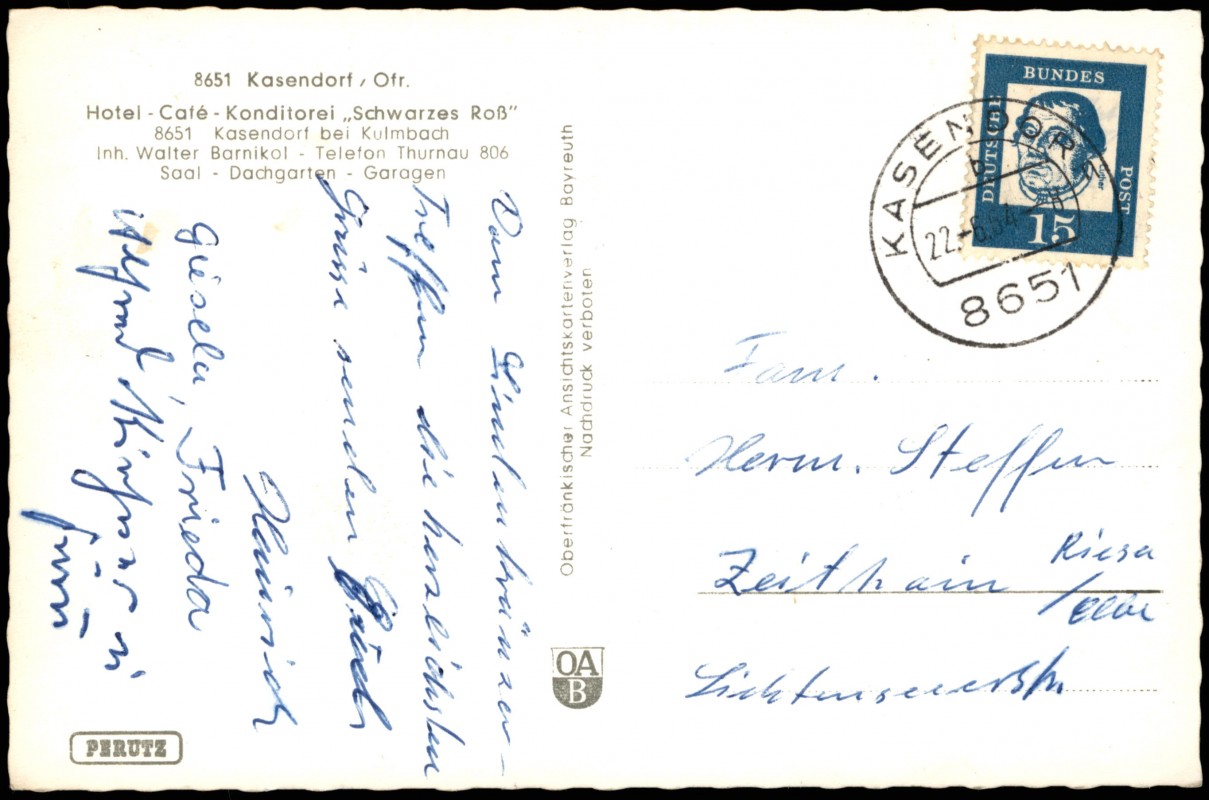 8651 Kasendorf / Ofr.
Hotel - Café - Konditorei „Schwarzes Roß"
8651 Kasendorf bei Kulmbach
Inh. Walter Barnikol - Telefon Thurnau 806
Saal - Dachgarten - Garagen
Vom
Treffen die herzlichsten
Grüsse senden
Heinrich
Gisela, Frieda
PERUTZ
Oberfränkischer Ansichtskartenverlag Bayreuth
Nachdruck verboten
OA
B
DEUTSCHE BUNDES POST
15
KASENDORF
b
8651
Fam.
Herm. Steffen
Zeithain Riesa
/ Elbe